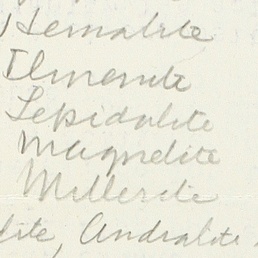 Hematite
Ilmenite
Lepidolite
Magnetite
Millerite
lite, Andralite